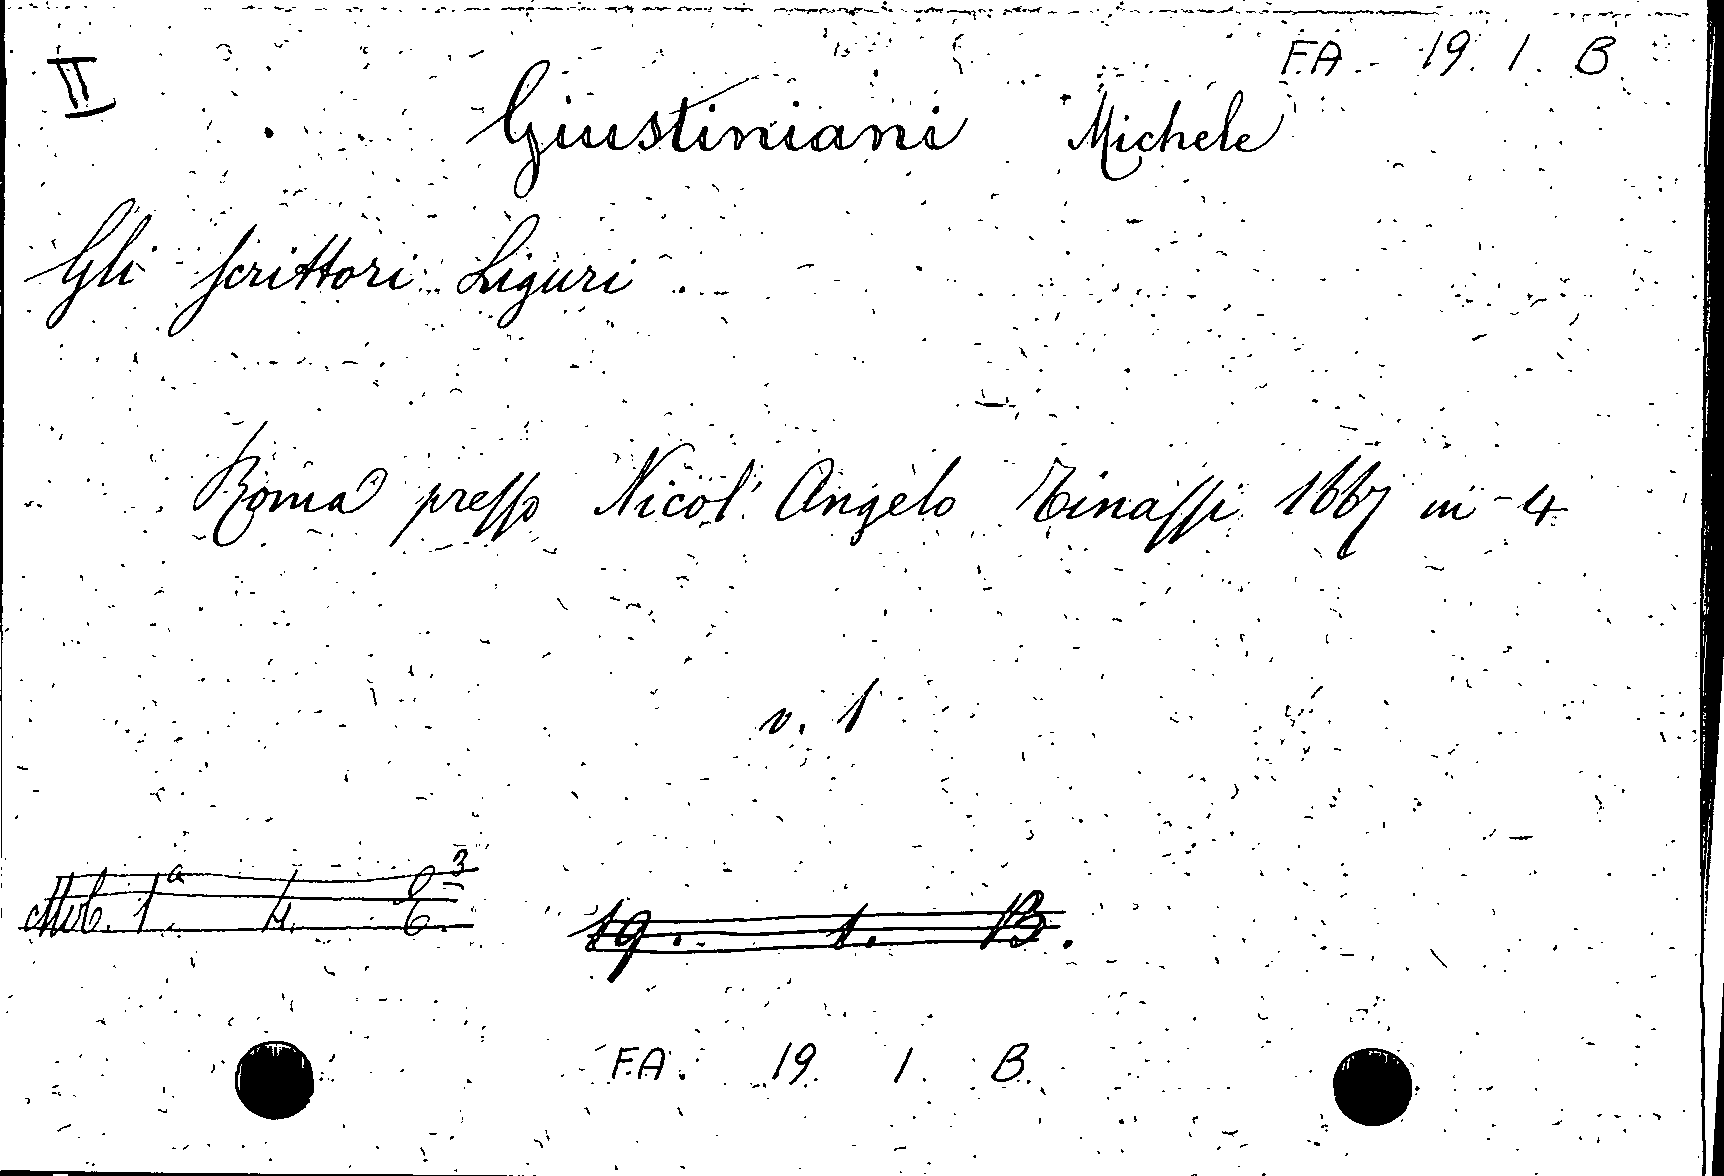 II
F.A. 19. 1. B
Giustiniani Michele
Gli scrittori Liguri.
Roma presso Nicol' Angelo Tinassi 1667 in-4
v. 1
Mob. 1ª. 4. E.³
19. 1. B.
F.A. 19. 1. B.